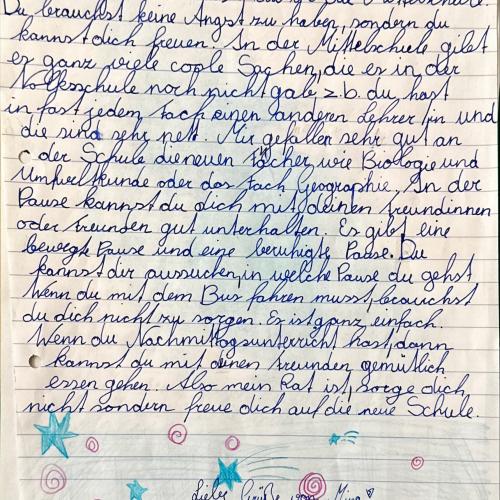 Du brauchst keine Angst zu haben, sondern du
kannst dich freuen. In der Mittelschule gibt
es ganz viele coole Sachen, die es in der
Volksschule noch nicht gab z.b. du hast
in fast jedem Fach einen anderen Lehrer/in und
die sind sehr nett. Mir gefallen sehr gut an
der Schule die neuen Fächer, wie Biologie und
Umweltkunde oder das Fach Geographie. In der
Pause kannst du dich mit deinen Freundinnen
oder Freunden gut unterhalten. Es gibt eine
bewegte Pause und eine beruhigte Pause. Du
kannst dir aussuchen, in welche Pause du gehst
Wenn du mit dem Bus fahren musst, brauchst
du dich nicht zu sorgen. Es ist ganz einfach.
Wenn du Nachmittagsunterricht hast, dann
kannst du mit deinen Freunden gemütlich
essen gehen. Also mein Rat ist, sorge dich
nicht sondern freue dich auf die neue Schule.
Liebe Grüße von Mina